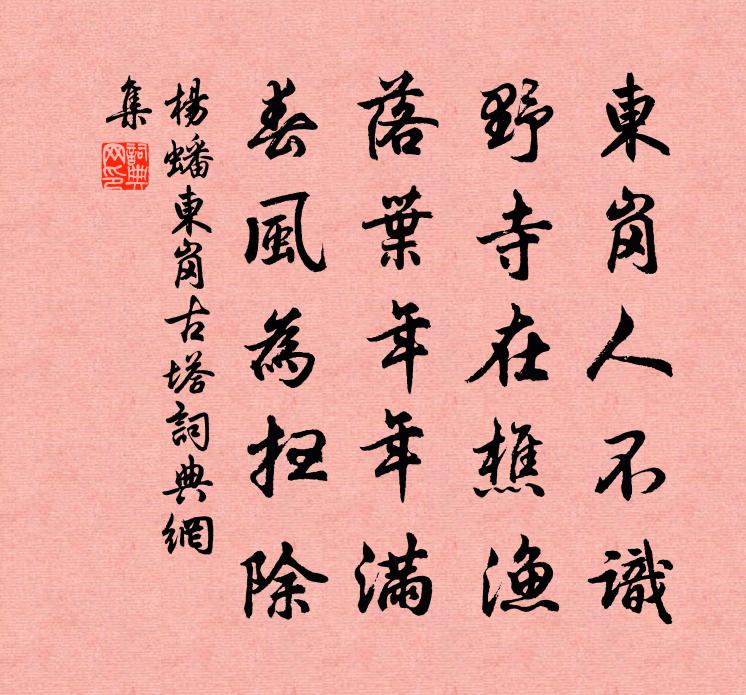 東崗人不識
野寺在樵漁
落葉年年滿
春風為扫除
楊蟠東崗古塔詞典網
集
詞典網印